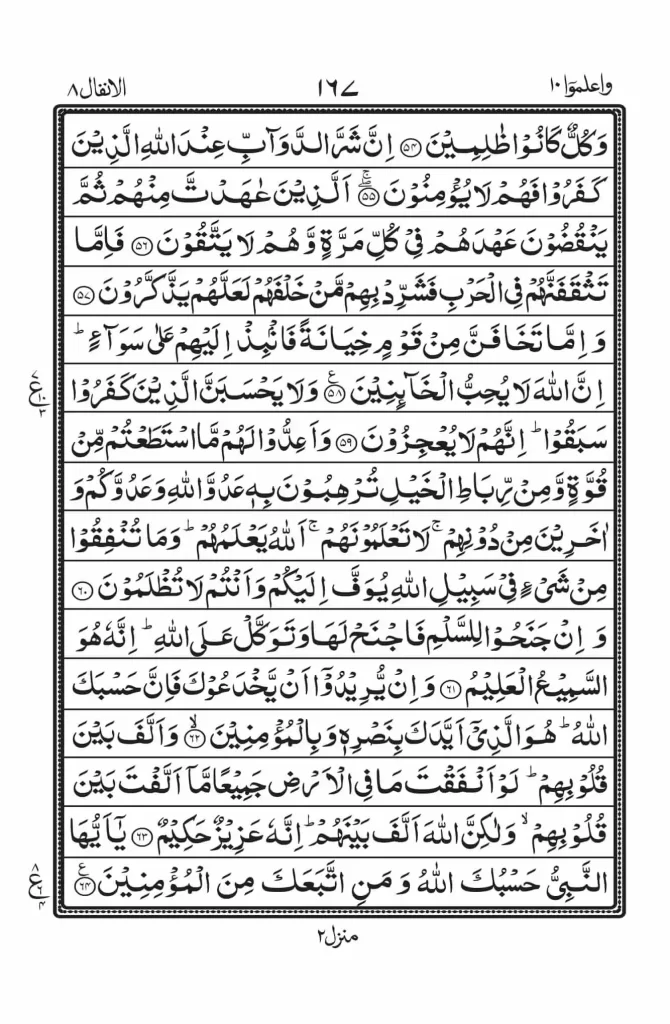 واعلموٓا ١٠ ١٦٧ الانفال ٨
وَكُلٌّ كَانُوۡا ظٰلِمِيۡنَ ﴿۵۴﴾ اِنَّ شَرَّ الدَّوَآبِّ عِنۡدَ اللّٰهِ الَّذِيۡنَ
كَفَرُوۡا فَهُمۡ لَا يُؤۡمِنُوۡنَ ۖۚ‏ ﴿۵۵﴾ اَلَّذِيۡنَ عٰهَدْتَّ مِنۡهُمۡ ثُمَّ
يَنۡقُضُوۡنَ عَهۡدَهُمۡ فِىۡ كُلِّ مَرَّةٍ وَّهُمۡ لَا يَتَّقُوۡنَ ﴿۵۶﴾ فَاِمَّا
تَثۡقَفَنَّهُمۡ فِى الۡحَرۡبِ فَشَرِّدۡ بِهِمۡ مَّنۡ خَلۡفَهُمۡ لَعَلَّهُمۡ يَذَّكَّرُوۡنَ ﴿۵۷﴾
وَاِمَّا تَخَافَنَّ مِنۡ قَوۡمٍ خِيَانَةً فَانْۢبِذۡ اِلَيۡهِمۡ عَلٰى سَوَآءٍ‌ ؕ
اِنَّ اللّٰهَ لَا يُحِبُّ الۡخَآٮِٕنِيۡنَ ﴿۵۸﴾ وَلَا يَحۡسَبَنَّ الَّذِيۡنَ كَفَرُوۡا
ع ٧ ١٠ ٣
سَبَقُوۡا‌ ؕ اِنَّهُمۡ لَا يُعۡجِزُوۡنَ ﴿۵۹﴾ وَاَعِدُّوۡا لَهُمۡ مَّا اسۡتَطَعۡتُمۡ مِّنۡ
قُوَّةٍ وَّمِنۡ رِّبَاطِ الۡخَيۡلِ تُرۡهِبُوۡنَ بِهٖ عَدُوَّ اللّٰهِ وَعَدُوَّكُمۡ وَ
اٰخَرِيۡنَ مِنۡ دُوۡنِهِمۡ‌ ۚ لَا تَعۡلَمُوۡنَهُمۡ‌ ۚ اَللّٰهُ يَعۡلَمُهُمۡ‌ؕ وَمَا تُنۡفِقُوۡا
مِنۡ شَىۡءٍ فِىۡ سَبِيۡلِ اللّٰهِ يُوَفَّ اِلَيۡكُمۡ وَاَنۡتُمۡ لَا تُظۡلَمُوۡنَ ﴿۶۰﴾
وَاِنۡ جَنَحُوۡا لِلسَّلۡمِ فَاجۡنَحۡ لَهَا وَتَوَكَّلۡ عَلَى اللّٰهِ‌ؕ اِنَّهٗ هُوَ
السَّمِيۡعُ الۡعَلِيۡمُ ﴿۶۱﴾ وَاِنۡ يُّرِيۡدُوۡۤا اَنۡ يَّخۡدَعُوۡكَ فَاِنَّ حَسۡبَكَ
اللّٰهُ‌ؕ هُوَ الَّذِىۡۤ اَيَّدَكَ بِنَصۡرِهٖ وَبِالۡمُؤۡمِنِيۡنَۙ‏ ﴿۶۲﴾ وَاَلَّفَ بَيۡنَ
قُلُوۡبِهِمۡ‌ؕ لَوۡ اَنۡفَقۡتَ مَا فِى الۡاَرۡضِ جَمِيۡعًا مَّاۤ اَلَّفۡتَ بَيۡنَ
قُلُوۡبِهِمۡۙ وَلٰـكِنَّ اللّٰهَ اَلَّفَ بَيۡنَهُمۡ‌ؕ اِنَّهٗ عَزِيۡزٌ حَكِيۡمٌ ﴿۶۳﴾ يٰۤاَيُّهَا
النَّبِىُّ حَسۡبُكَ اللّٰهُ وَ مَنِ اتَّبَعَكَ مِنَ الۡمُؤۡمِنِيۡنَ ﴿۶۴﴾
ع ٨ ٦ ٤
منزل ٢